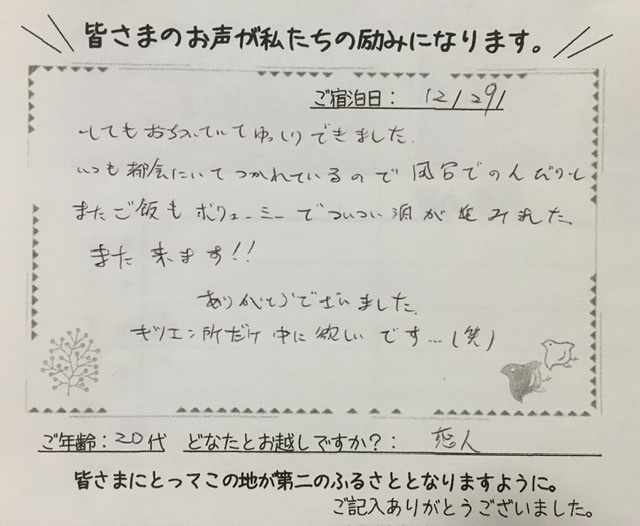 皆さまのお声が私たちの励みになります。
ご宿泊日: 12/29
とてもおちついていてゆっくりできました。
いつも都会にいてつかれているので 風呂でのんびりし
またご飯もボリューミーでついつい酒が進みました。
また来ます!!
ありがとうございました。
キツエン所だけ中に欲しいです…(笑)
ご年齢: 20代 どなたとお越しですか?: 恋人
皆さまにとってこの地が第二のふるさととなりますように。
ご記入ありがとうございました。